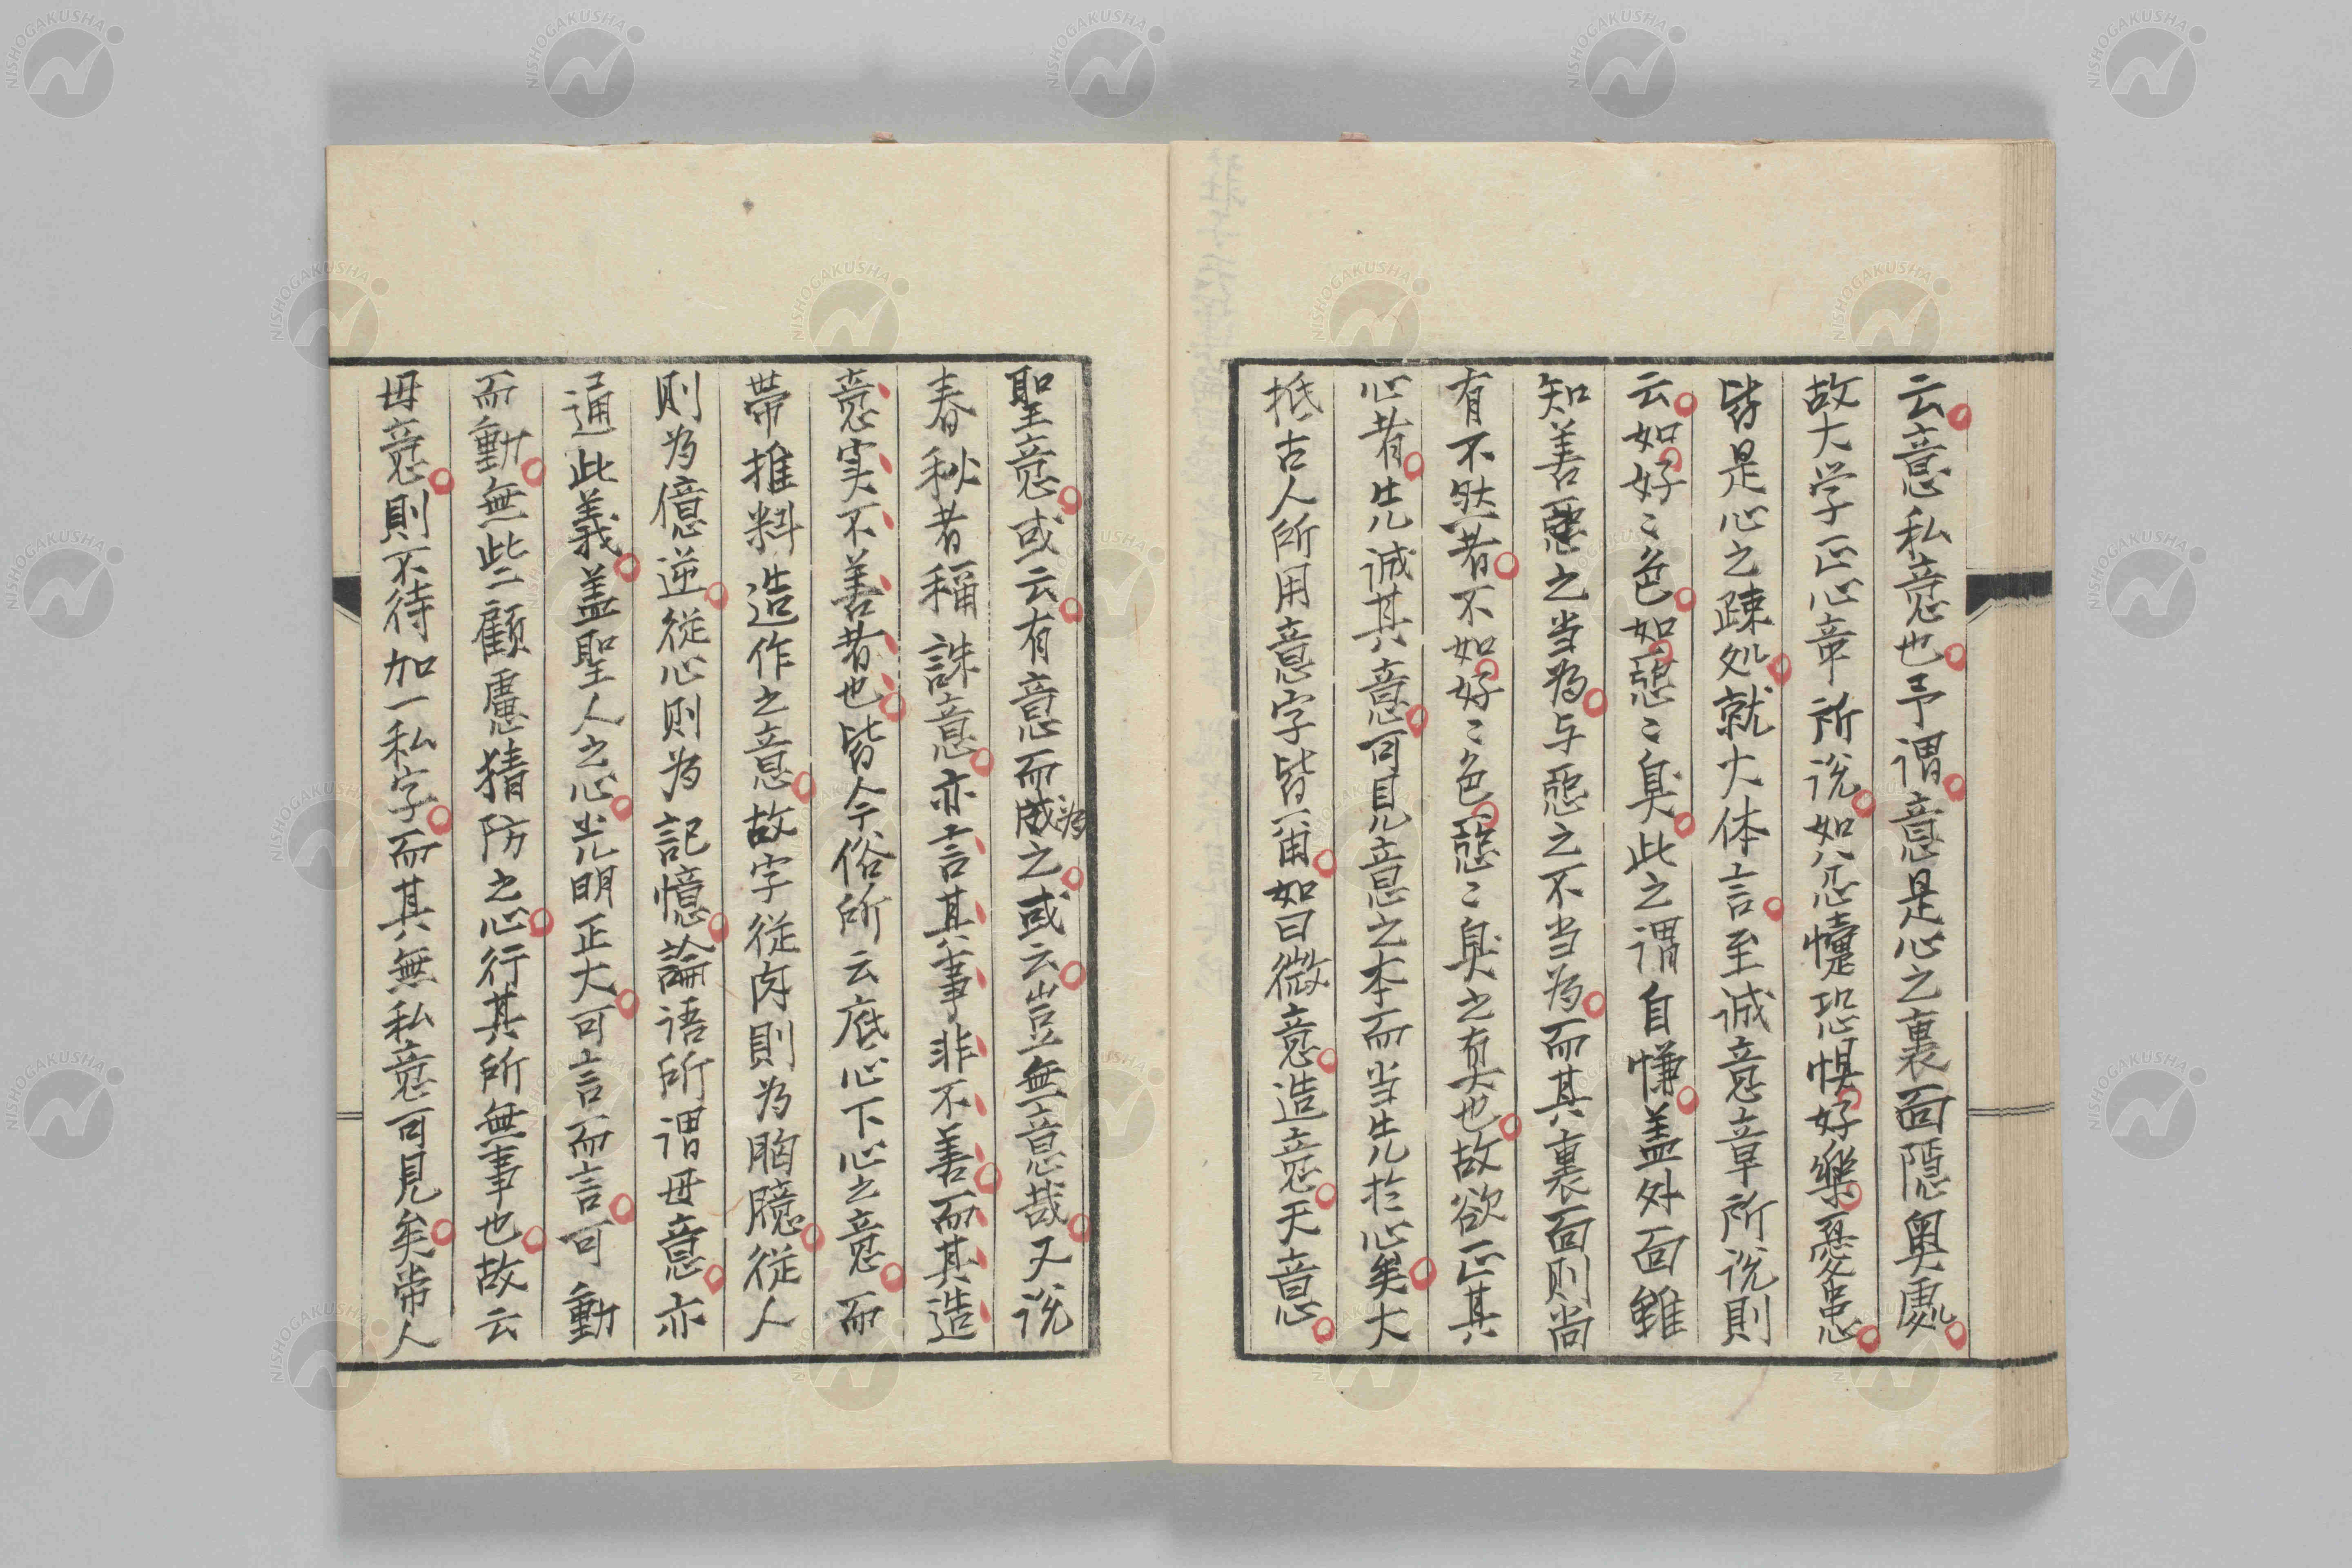 云意私意也予謂意是心之裏面隠奥處
故大学正心章所説如忿懥恐惧好樂憂患
皆是心之疎処就大体言至誠意章所説則
云如好〻色如惡〻臭此之謂自慊盖外面雖
知善惡之当為与惡之不当為而其裏面則尚
有不然者不如好〻色惡〻臭之真也故欲正其
心者先誠其意可見意之本而当先於心矣大
抵古人所用意字皆ホ如曰微意造意天意
聖意或云有意而為之或云豈無意哉又説
春秋者稱誅意亦言其事非不善而其造
意実不善者也皆今俗所云底心下心之意而
帯推料造作之意故字従肉則為胸臆従人
則為億逆従心則為記憶論語所謂毋意亦
通此義盖聖人之心光明正大可言而言可動
而動無些顧慮猜防之心行其所無事也故云
毋意則不待加一私字而其無私意可見矣常人
NISHOGAKUSHA